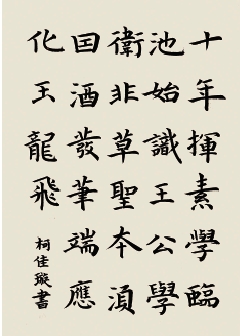 十年揮素學臨
池始識王公學
衛非草聖本湏
囙酒發筆端應
化玉龍飛
柯佳璇書